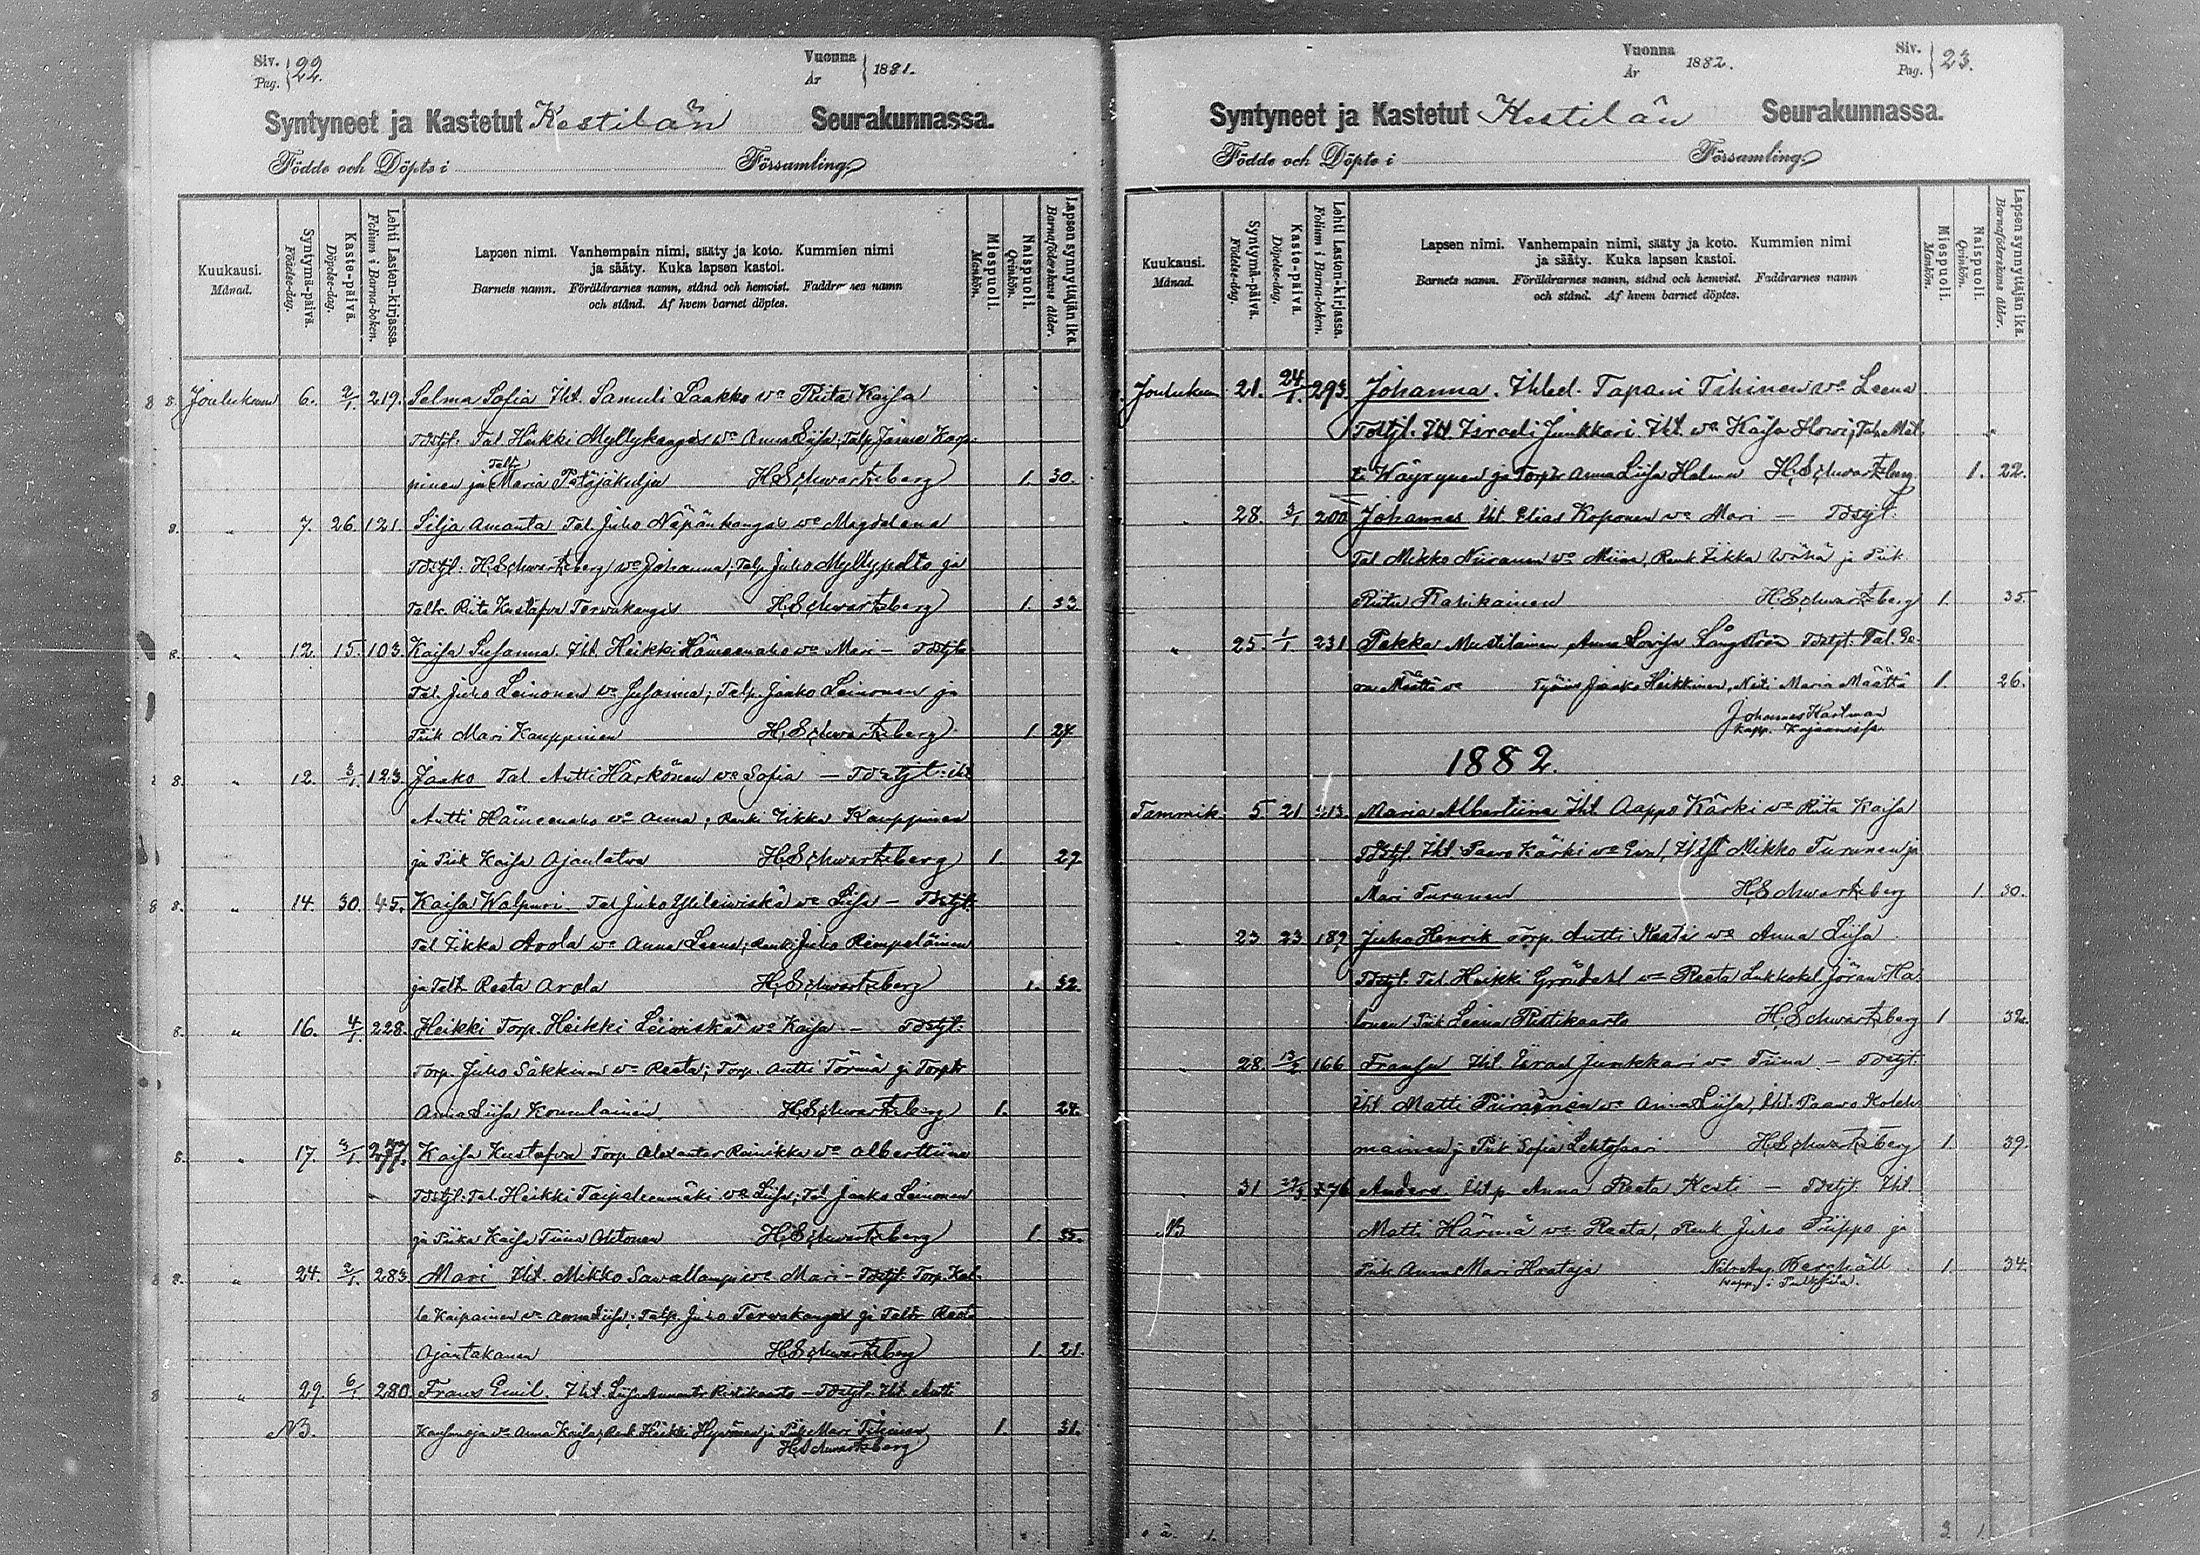 Siv. Pag. 22.
Vuonna År 1881.
Syntyneet ja Kastetut Kestilän Seurakunnassa.
Födde och Döpte i Församling.
Kuukausi. Månad.
Syntymä-päivä. Födelse-dag.
Kaste-päivä. Döpelse-dag.
Lehti Lasten-kirjassa. Folium i Barna-boken.
Lapsen nimi. Vanhempain nimi, sääty ja koto. Kummien nimi
ja sääty. Kuka lapsen kastoi.
Barnets namn. Föräldrarnes namn, stånd och hemvist. Faddrarnes namn
och stånd. Af hvem barnet döptes.
Miespuoli. Mankön.
Naispuoli. Qvinkön.
Lapsen synnyttäjän ikä. Barnaföderskans ålder.
8 8. Joulukuun 6. 2/1 219. Selma Sofia Iht. Samuli Laakko wo Riita Kaisa
Tal Heikki Myllykangas wo Anna Liisa; Talp. Karp-
pinen ja Taltr Maria Petäjäkulju H. Schwartzberg 1. 30.
8. " 7. 26. 121. Silja Amanta Tal. Juho Näpänkangas wo Magdalena
H. Schwartzberg wo Johanna; Talp. Juho Myllypelto ja
Taltr. Riita Kustafva Terwakangas H. Schwartzberg 1. 33.
8. " 12. 15. 103. Kaisa Susanna Iht. Heikki Hämeenaho wo Mari –
Tal. Juho Leinonen wo Susanna; Talp. Jaako Leinonen ja
Piik Mari Kauppinen H. Schwartzberg 1 27
8. " 12. 3/1. 123. Jaako Tal Antti Härkönen wo Sofia –
Antti Hämeenaho wo Anna; Renki Erkka Kauppinen
ja Piik Kaisa Ajanlatwa H. Schwartzberg 1. 29
8 8. " 14. 30. 45. Kaisa Walpuri Tal Juho Ylileiwiskä wo Liisa –
Tal Erkka Arola wo Anna Leena; Renki Juho Rimpeläinen
ja Taltr Reeta Arola H. Schwartzberg 1. 32.
8. " 16. 4/1 228. Heikki Torp. Heikki Leiwiskä wo Kaisa –
Torp. Juho Säkkinen wo Reeta; Torp. Antti Törmä ja Torptr
Anna Liisa H. Schwartzberg 1. 24.
8. " 17. 3/1 277. Kaisa Kustafva Torp Alexanter Rainikka wo Alberttiina
Tal. Heikki Taipaleenmäki wo Liisa; Tal Jaako Leinonen
ja Piika Kaisa Tiina Ahtonen H. Schwartzberg 1. 35.
8 8. " 24. 2/1. 283. Mari Iht. Mikko Sawallampi wo Mari – Torp. Kal-
le Kaipainen wo Anna Liisa; Talp. Juho Terwakangas ja Taltr Reeta
Ajantakanen H. Schwartzberg 1 21.
8 " 29. 6/1 280 Frans Emil. Iht. Liisa Amanta Ristikaarto – Iht. Antti
NB. wo Anna Kaisa; Renk Heikki Hyvönen ja Piik Mari Tihinen 1 31.
H. Schwartzberg
Vuonna År 1882.
Siv. Pag. 23.
Syntyneet ja Kastetut Kestilän Seurakunnassa.
Födde och Döpte i Församling.
Kuukausi. Månad.
Syntymä-päivä. Födelse-dag.
Kaste-päivä. Döpelse-dag.
Lehti Lasten-kirjassa. Folium i Barna-boken.
Lapsen nimi. Vanhempain nimi, sääty ja koto. Kummien nimi
ja sääty. Kuka lapsen kastoi.
Barnets namn. Föräldrarnes namn, stånd och hemvist. Faddrarnes namn
och stånd. Af hvem barnet döptes.
Miespuoli. Mankön.
Naispuoli. Qvinkön.
Lapsen synnyttäjän ikä. Barnaföderskans ålder.
Joulukuu 21. 24/1. 293. Johanna. Tapani Tihinen wo Leena
Iht Israeli Junkkari Iht. wo Kaisa Howi; Tal. Mat-
ti Wäyrynen ja Torptr Anna Liisa Halonen H. Schwartzberg 1. 22.
28. 3/1 200 Johannes Iht. Elias Koponen wo Mari –
Tal Mikko Niiranen wo Miina, Renk Erkka Wähä ja Piik
Riita Karikainen H. Schwartzberg 1. 35.
" 25. 1/1 231 Pekka Mustilainen, Anna Lovisa Långström Tal. Ee-
ro Määttä wo Jaako Heikkinen, Neiti Maria Määttä 1. 26.
Johannes Kartman
Kapp. Kajaanissa
1882.
Tammik. 5. 21 213. Maria Albertiina Iht Aappo Kärki wo Riita Kaisa
Iht. Paawo Kärki wo Ewa, Mikko Turunen ja
Mari Turunen H. Schwartzberg 1. 30.
23 23 187 Juho Henrik Torp. Antti Kesti wo Anna Liisa
Tal. Heikki Gröndahl wo Reeta Jöran Ha-
lonen Piik Leena Ristikaarto H. Schwartzberg 1 32.
28. 13/2 166 Fransu Iht. Israel Junkkari wo Tiina –
Iht Matti Piirainen wo Anna Liisa, Iht. Paawo Koleh-
mainen ja Piik Sofia Lehtosaari H. Schwartzberg 1. 39.
31 276 Anders Anna Reeta Kesti – Iht.
NB Matti Härmä wo Reeta, Renk Juho Piippo ja
Piik Anna Mari Haataja Nils Aug. Bergdáll 1. 34.
Kapp. i Pulkkila.
2 1